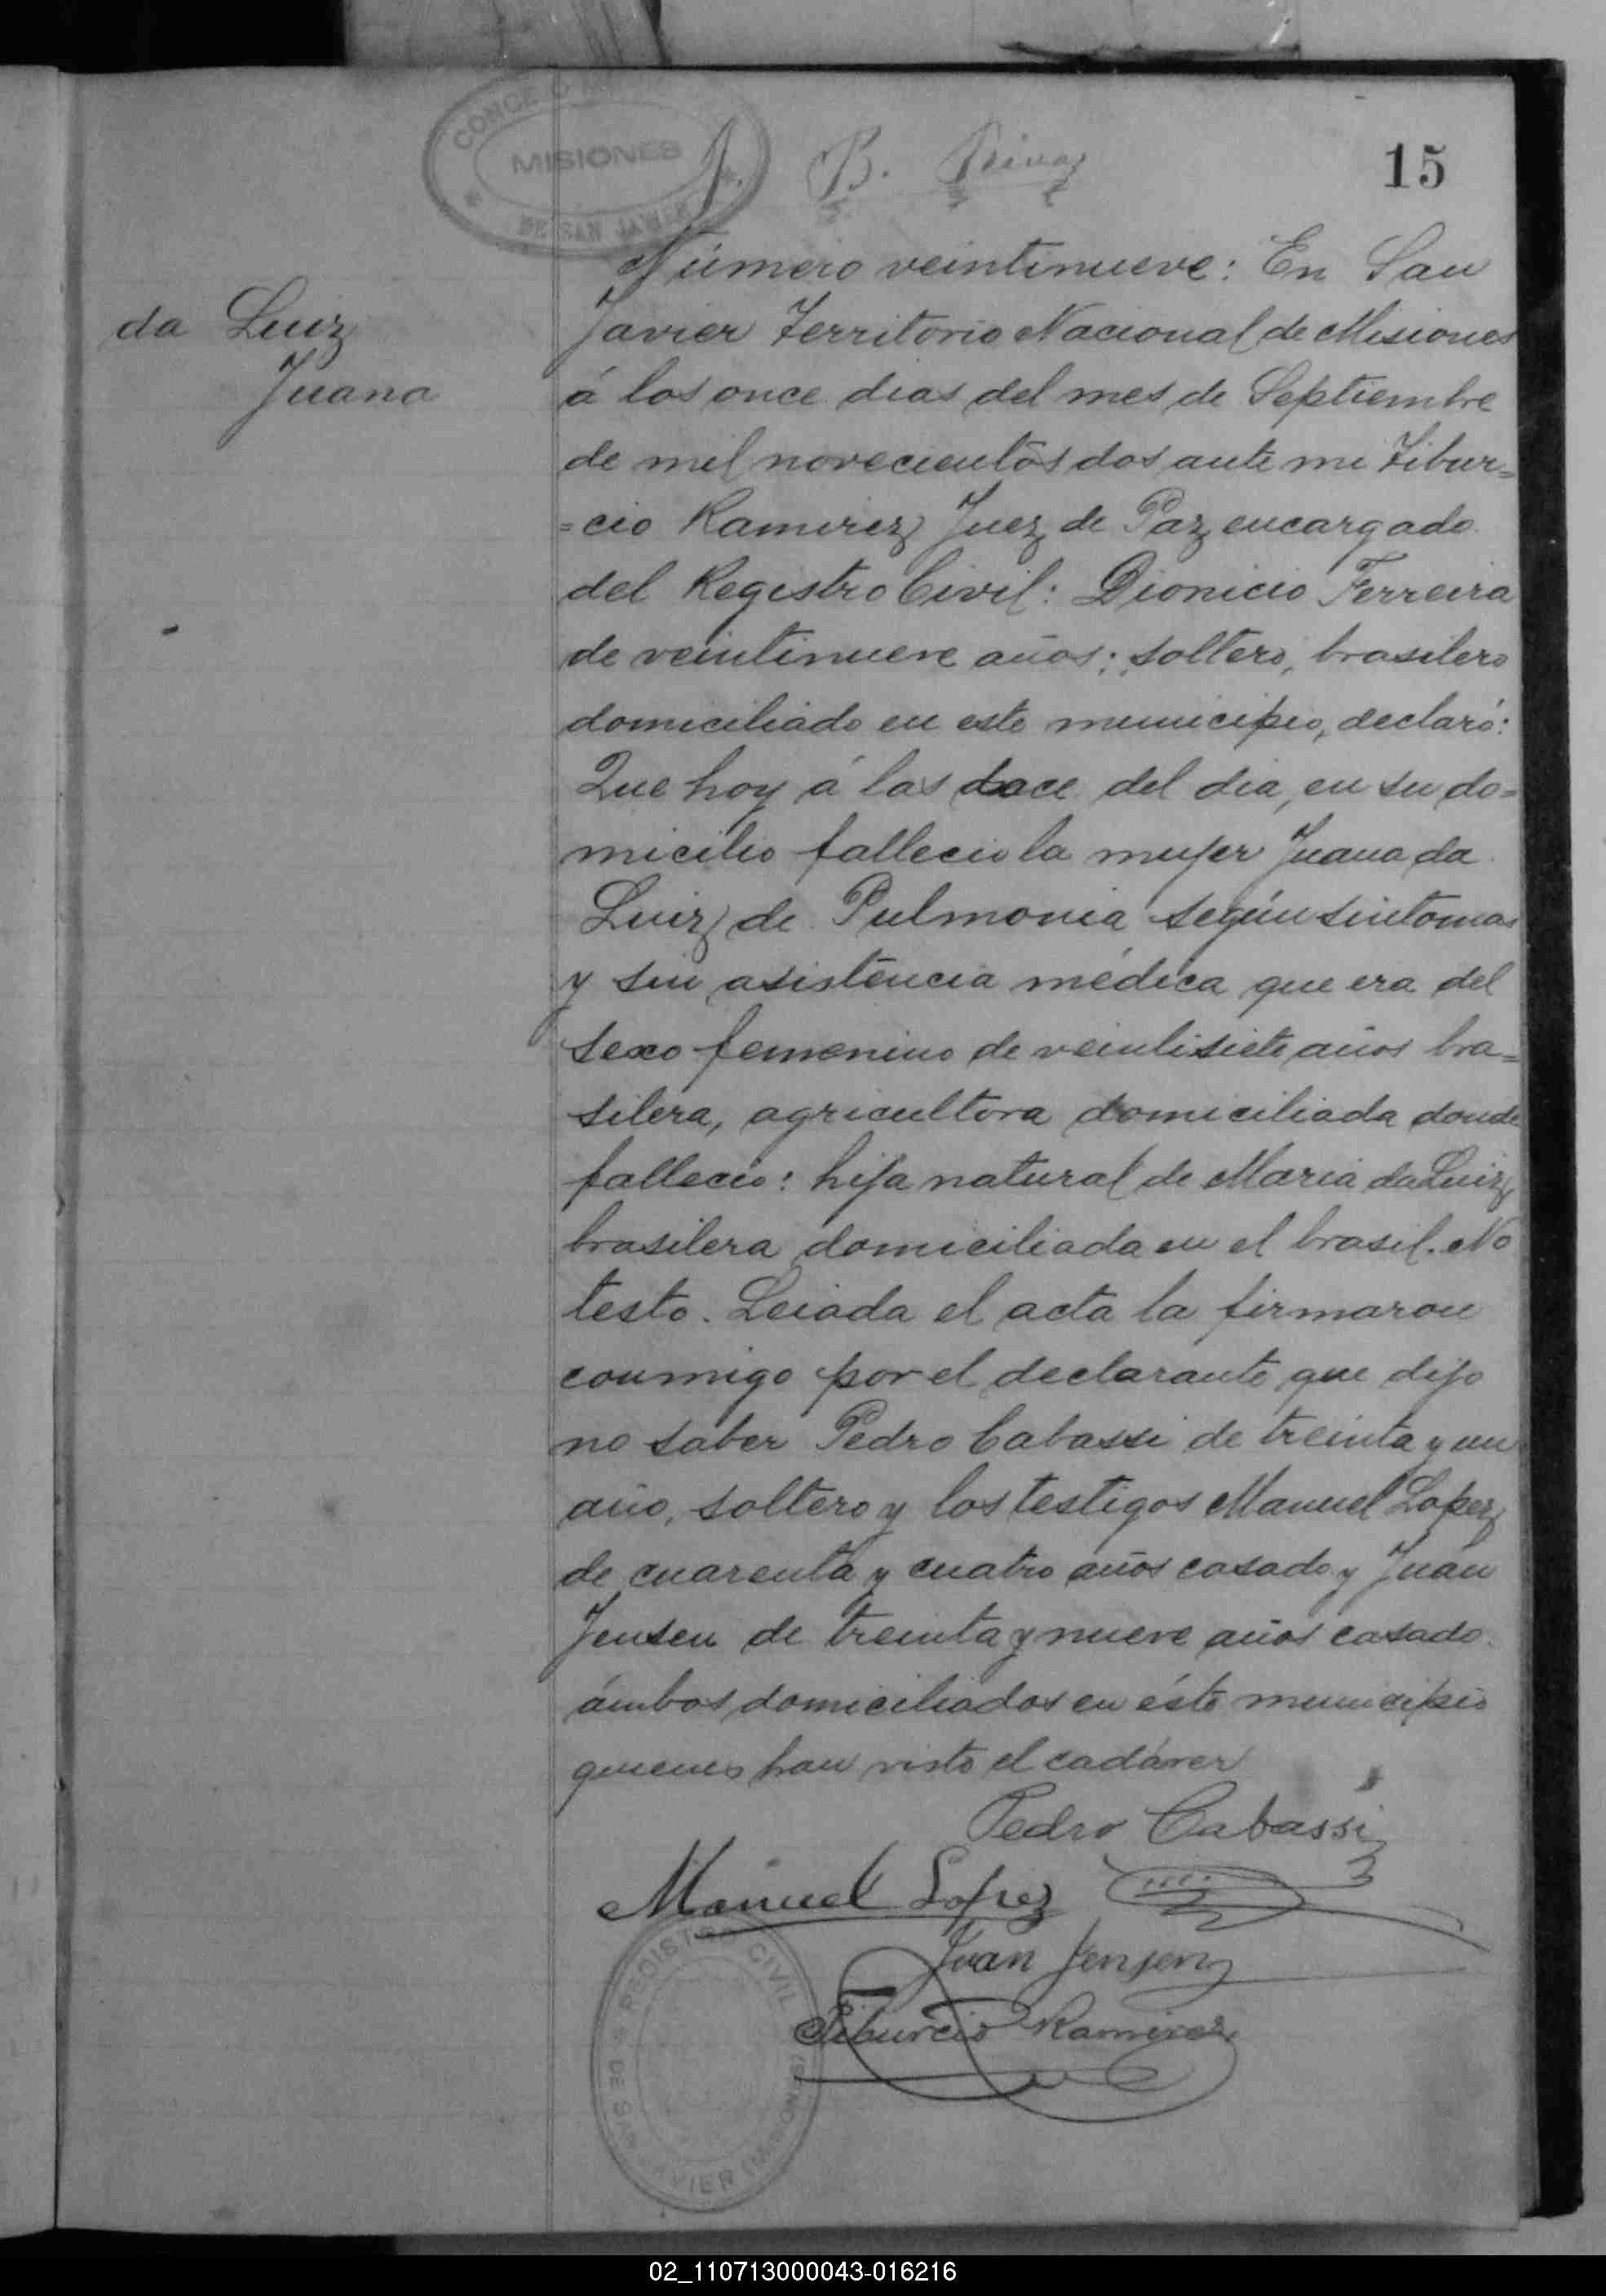 CONCE
MISIONES
DE SAN JAVIER
B. Rivas
15
da Luiz
Juana
Número veintinueve: En San
Javier Territorio Nacional de Misiones
á los once dias del mes de Septiembre
de mil novecientos dos ante mi Tibur=
=cio Ramirez Juez de Paz encargado
del Registro Civil: Dionicio Ferreira
de veintinueve años; soltero, brasilero
domiciliado en este municipio, declaró:
Que hoy á las doce del dia, en su do=
micilio fallecio la mujer Juana da
Luiz de Pulmonia según sintomas
y sin asistencia médica que era del
sexo femenino de veintisiete años bra=
silera, agricultora domiciliada donde
fallecio: hija natural de Maria da Luiz
brasilera domiciliada en el brasil. No
testo. Leiada el acta la firmaron
conmigo por el declarante que dijo
no saber Pedro Cabassi de treinta y un
año, soltero y los testigos Manuel Lopez
de cuarenta y cuatro años casado y Juan
Jensen de treinta y nueve años casado
ámbos domiciliados en éste municipio
quienes han visto el cadáver
Pedro Cabassi
Manuel Lopez
Juan Jensen
Tiburcio Ramirez
REGISTRO CIVIL
DE SAN JAVIER (MISIONES)
02_110713000043-016216